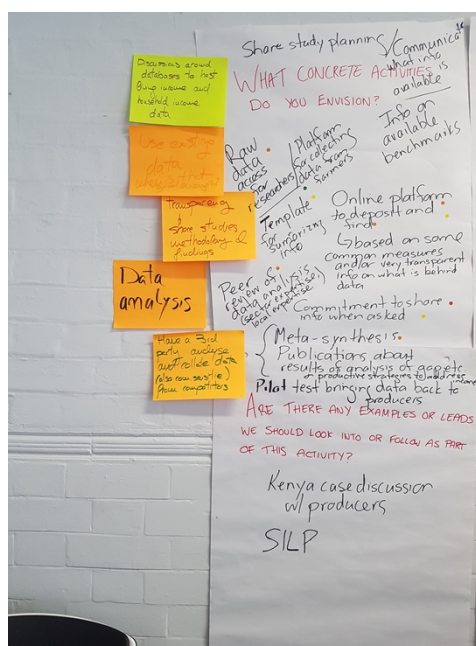 Discussions around
databases to host
living income and
household income
data
Use existing
data
Transparency
share studies
methodology &
findings
Data
analysis
Have a 3rd
party analyse
data
from competitors
Share study planning
Communica
what info
is
available
WHAT CONCRETE ACTIVITIES
DO YOU ENVISION?
Info on
available
benchmarks
Raw
data
access
for
researchers
Platform
for collecting
data from
farmers
Template
for summarizing
info
Online platform
to deposit and
find
based on some
common measures
and/or very transparent
info on what is behind
data
Peer
review of
data analysis
(sector expertise,
local expertise)
Commitment to share
info when asked
Meta-synthesis
Publications about
results of analysis of gap etc
or productive strategies to address
income
Pilot test bringing data back to
producers
ARE THERE ANY EXAMPLES OR LEADS
WE SHOULD LOOK INTO OR FOLLOW AS PART
OF THIS ACTIVITY?
Kenya case discussion
w/ producers
SILP